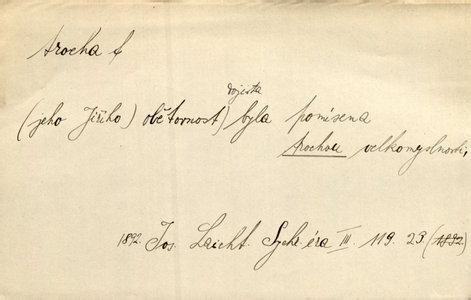 trocha f
(jeho Jiřího) obětavost) zajisté byla pomísena
trochou velkomyslnosti,
1892. Jos. Laicht. Sych. éra III. 119. 23. (1892)